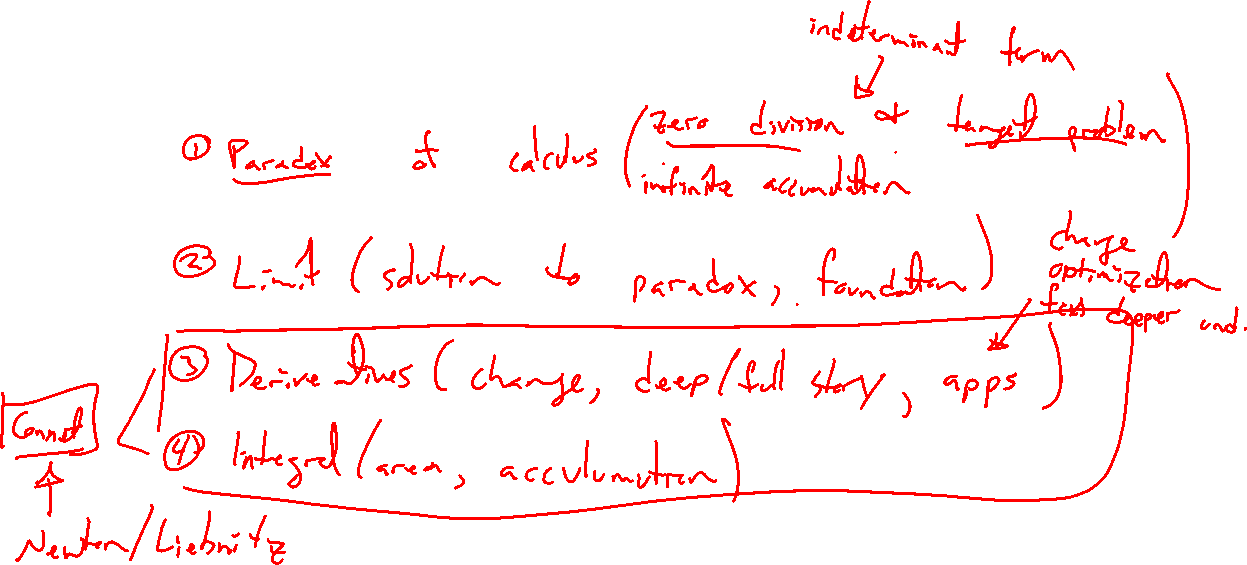 indeterminant form
① Paradox of calculus (zero division & tangent problem
infinite accumulation)
② Limit (solution to paradox, foundation)
change
optimization
fcn deeper und.
③ Derivatives (change, deep/full story, apps)
Connect
④ Integral (area, acculumution)
Newton/Liebnitz